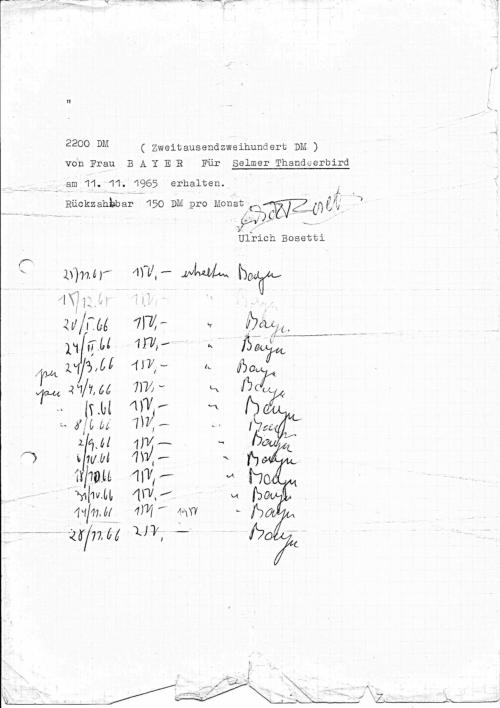 "
2200 DM ( Zweitausendzweihundert DM )
von Frau B A Y E R Für Selmer Thanderbird
am 11. 11. 1965 erhalten.
Rückzahbar 150 DM pro Monat
Ulrich Bosetti
25/11.65 150,- erhalten Bayer
15/12.65 150,- " Bayer
20/I.66 150,- " Bayer
24/II.66 150,- " Bayer
24/3.66 150,- " Bayer
24/4.66 150,- " Bayer
/5.66 150,- " Bayer
" 8/6.66 150,- " Bayer
2/9.66 150,- " Bayer
6/10.66 150,- " Bayer
18/10.66 150,- " Bayer
31/10.66 150,- " Bayer
14/11.66 150,- 1950 " Bayer
28/11.66 250,- Bayer